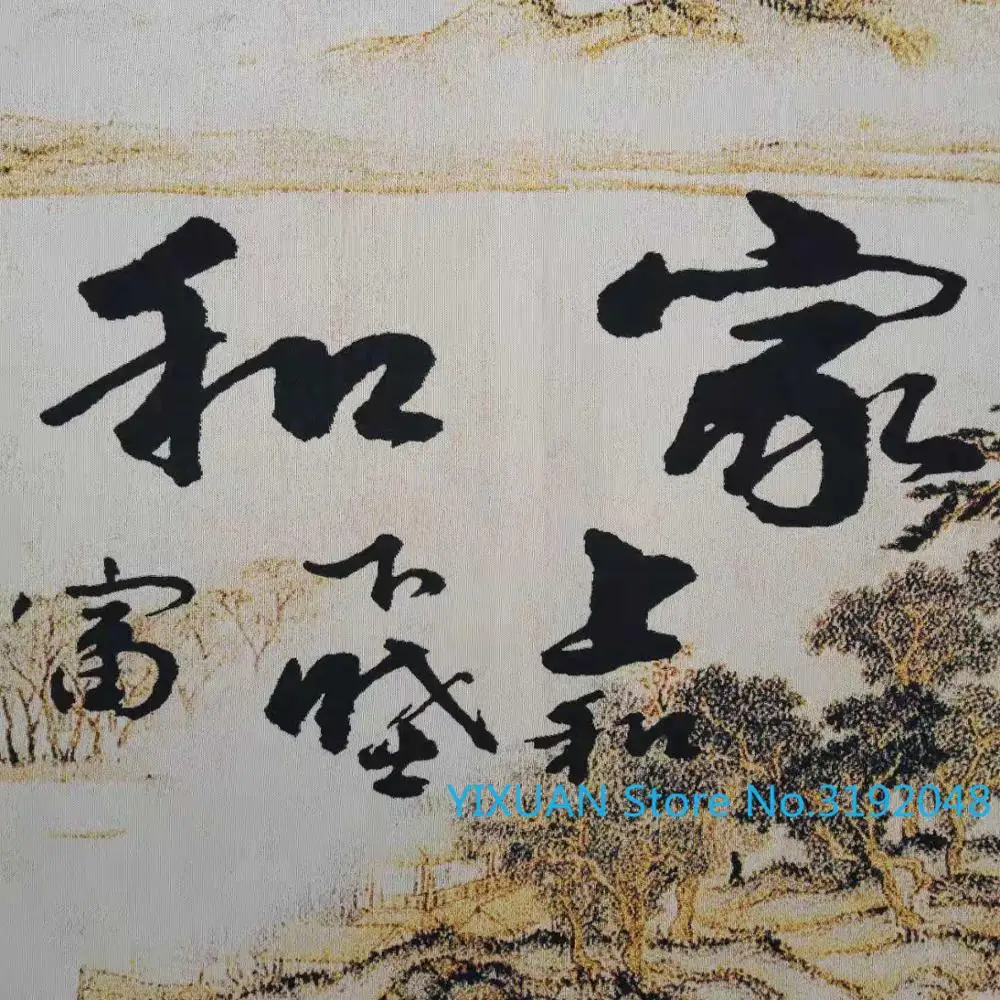 家和
上和
下睦
富
YIXUAN Store No.3192048